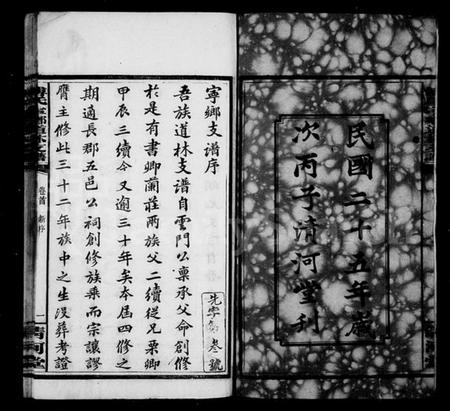 民國二十五年歲
次丙子清河堂刊
寧鄉支譜序
吾族道林支譜自雲門公稟承父命創修
於是有書卿蘭莊兩族父二續從兄栗卿
甲辰三續今又逾三十年矣本屆四修之
期適長郡五邑公祠創修族乘而宗讓謬
膺主修此三十二年族中之生沒葬考證
先字第叁號
卷首 新序
一
清河堂